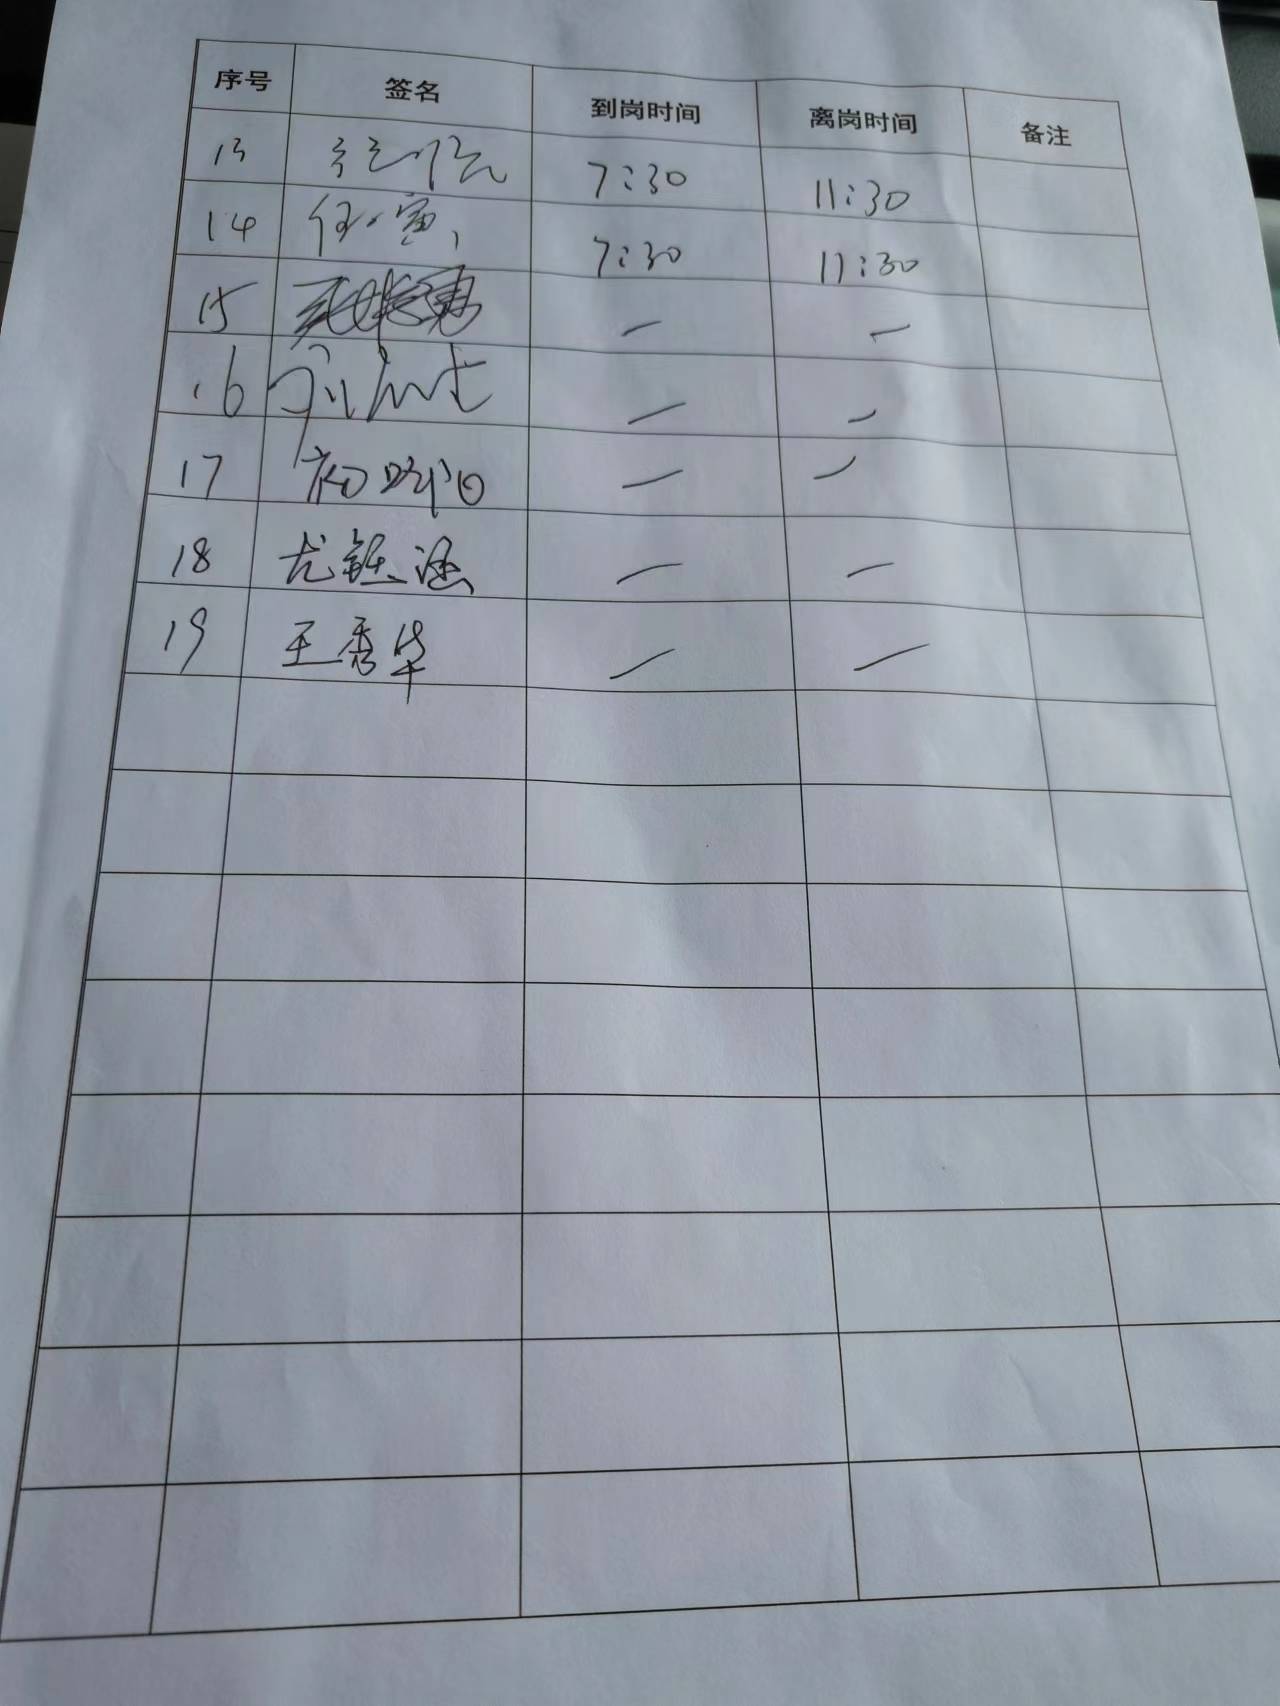 序号 签名 到岗时间 离岗时间 备注
13 7:30 11:30
14 7:30 11:30
15 — —
16 — —
17 — —
18 尤 涵 — —
19 王秀华 — —